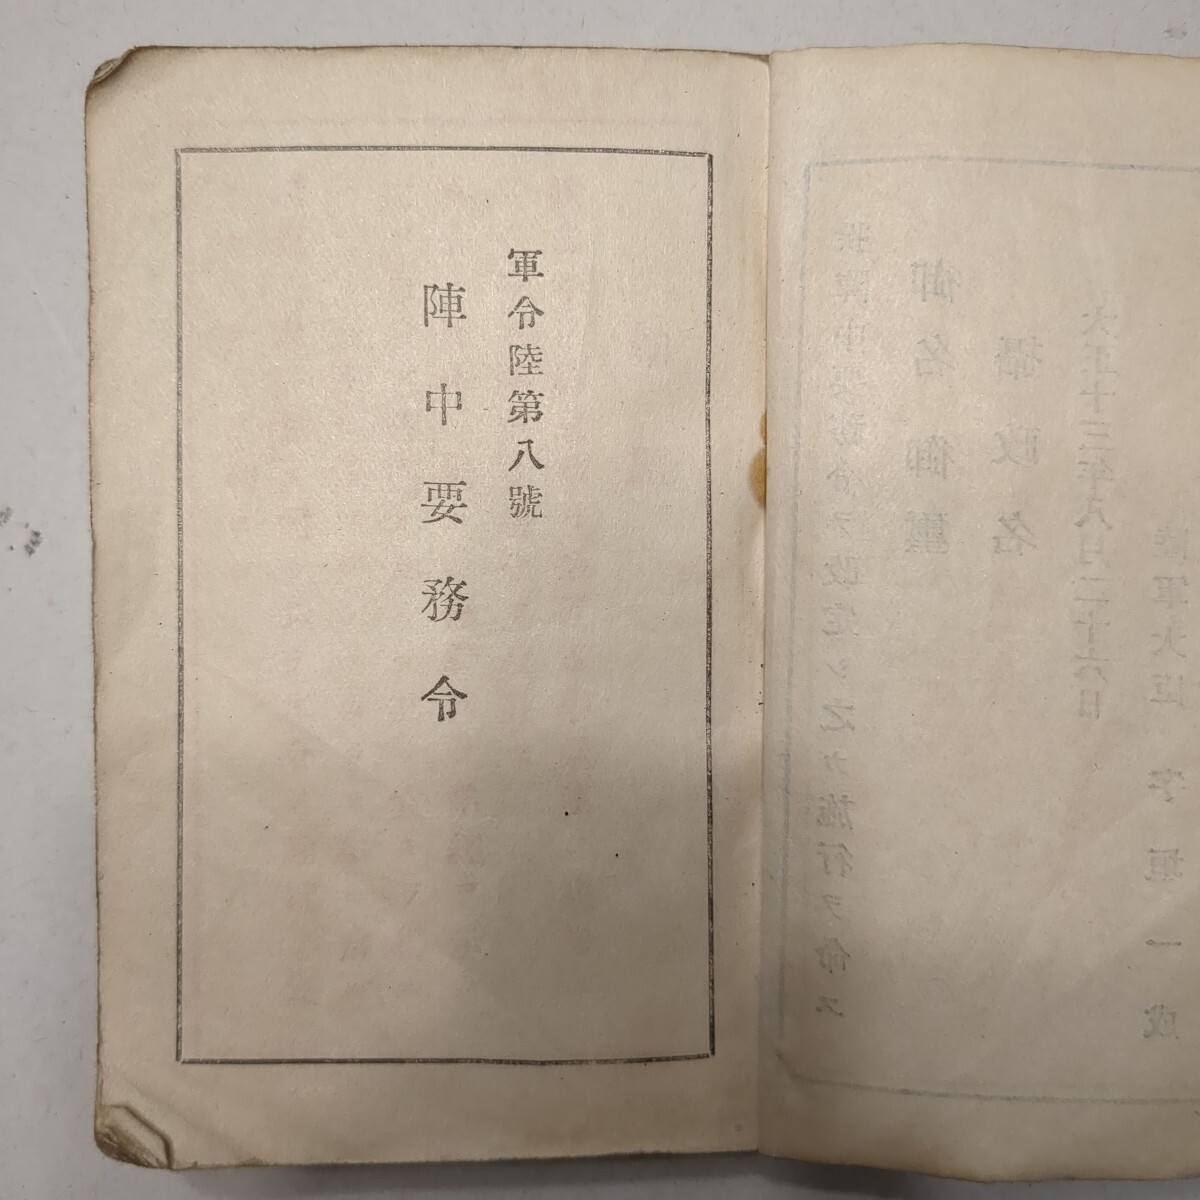 軍令陸第八號
陣中要務令
朕陣中要務令ヲ改定シ之カ施行ヲ命ス
御名御璽
攝政名
大正十三年八月二十六日
陸軍大臣 宇垣一成